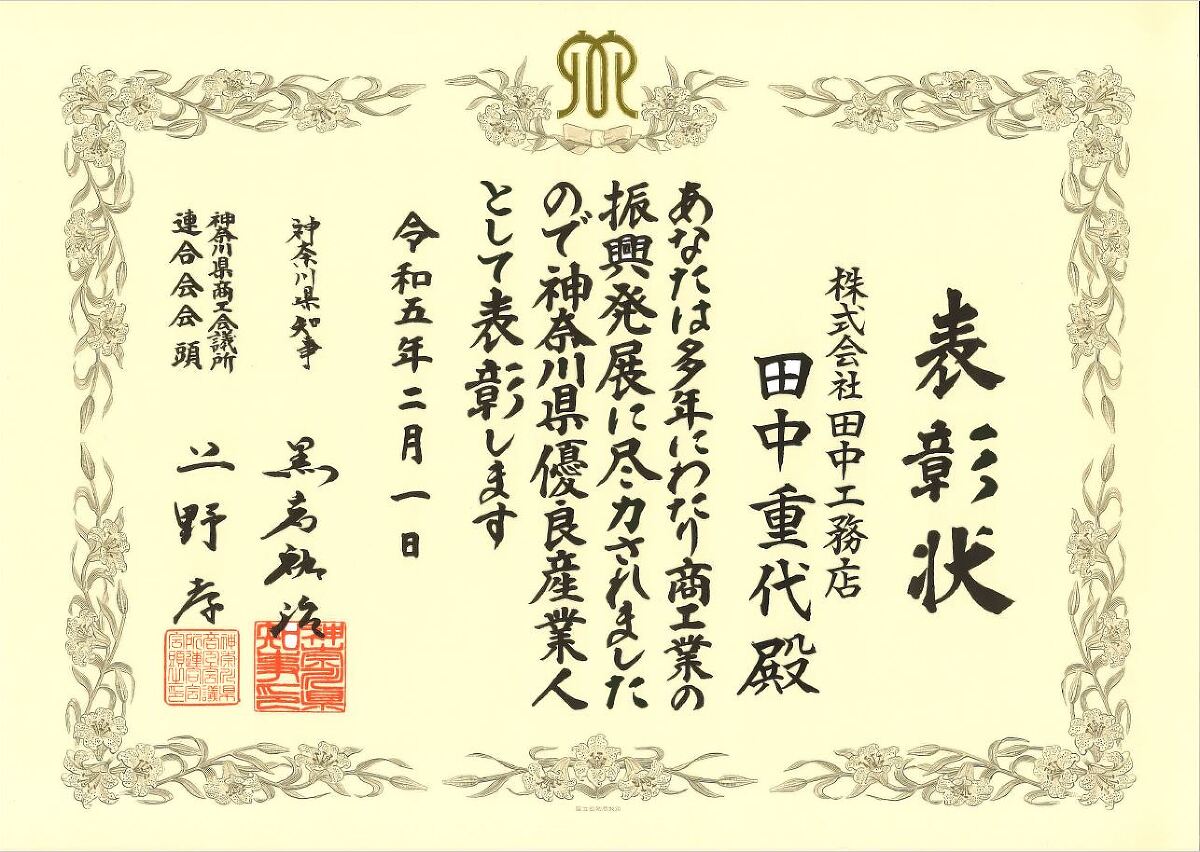 表彰状
株式会社田中工務店
田中重代殿
あなたは多年にわたり商工業の
振興発展に尽力されました
ので神奈川県優良産業人
として表彰します
令和五年二月一日
神奈川県知事
黒岩祐治
神奈川県知事印
神奈川県商工会議所
連合会会頭
上野孝